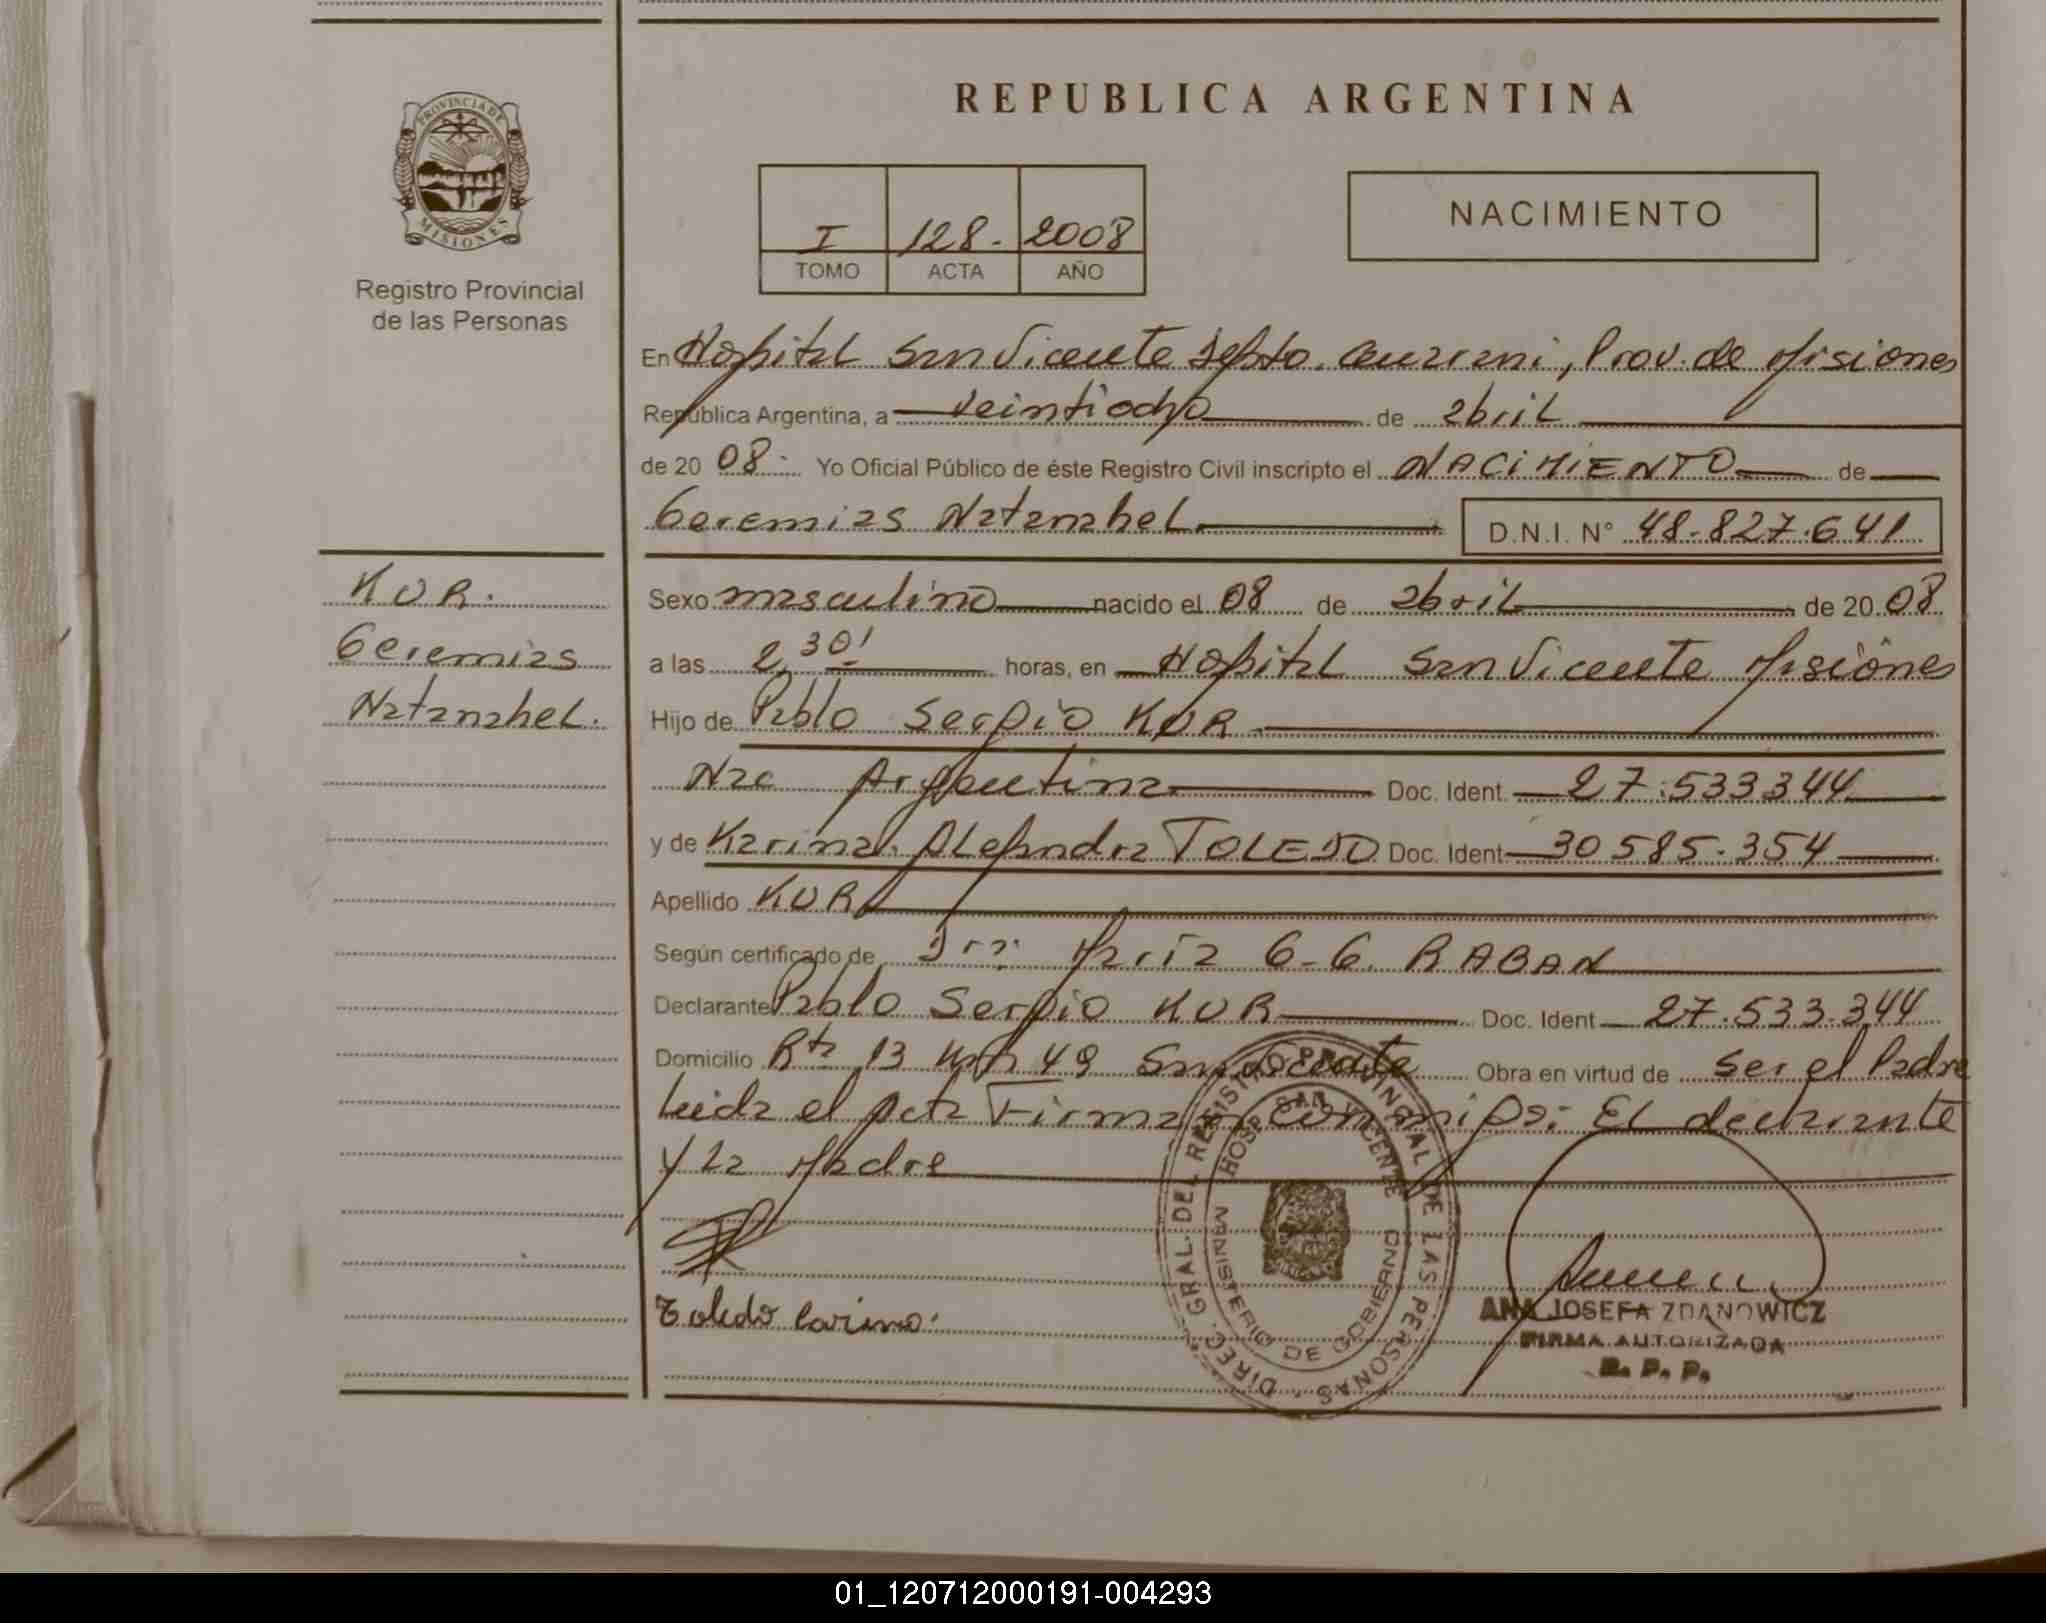 REPUBLICA ARGENTINA
PROVINCIA DE
MISIONES
Registro Provincial
de las Personas
I 128- 2008
TOMO ACTA AÑO
NACIMIENTO
En Hospital San Vicente Depto. Guarani, Prov. de Misiones
República Argentina, a veintiocho de abril
de 20 08 Yo Oficial Público de éste Registro Civil inscripto el NACIMIENTO de
Geremias Natanahel D.N.I. N° 48.827.641
KUR.
Geremias
Natanahel.
Sexo masculino nacido el 08 de abril de 20 08
a las 2,30' horas, en Hospital San Vicente Misiones
Hijo de Pablo Sergio KUR
Nac Argentina Doc. Ident. 27.533344
y de Karina Alejandra TOLEDO Doc. Ident 30585.354
Apellido KUR
Según certificado de Dra. María G. G. RABAN
Declarante Pablo Sergio KUR Doc. Ident 27.533.344
Domicilio Rta 13 Km 49 San Vicente Obra en virtud de ser el Padre
Leida el Acta Firman conmigo: El declarante
y la Madre
Toledo Carina.
DIREC. GRAL. DEL REGISTRO PROVINCIAL DE LAS PERSONAS
HOSP. SAN VICENTE
MINISTERIO DE GOBIERNO
ANA JOSEFA ZDANOWICZ
FIRMA AUTORIZADA
R. P. P.
01_120712000191-004293